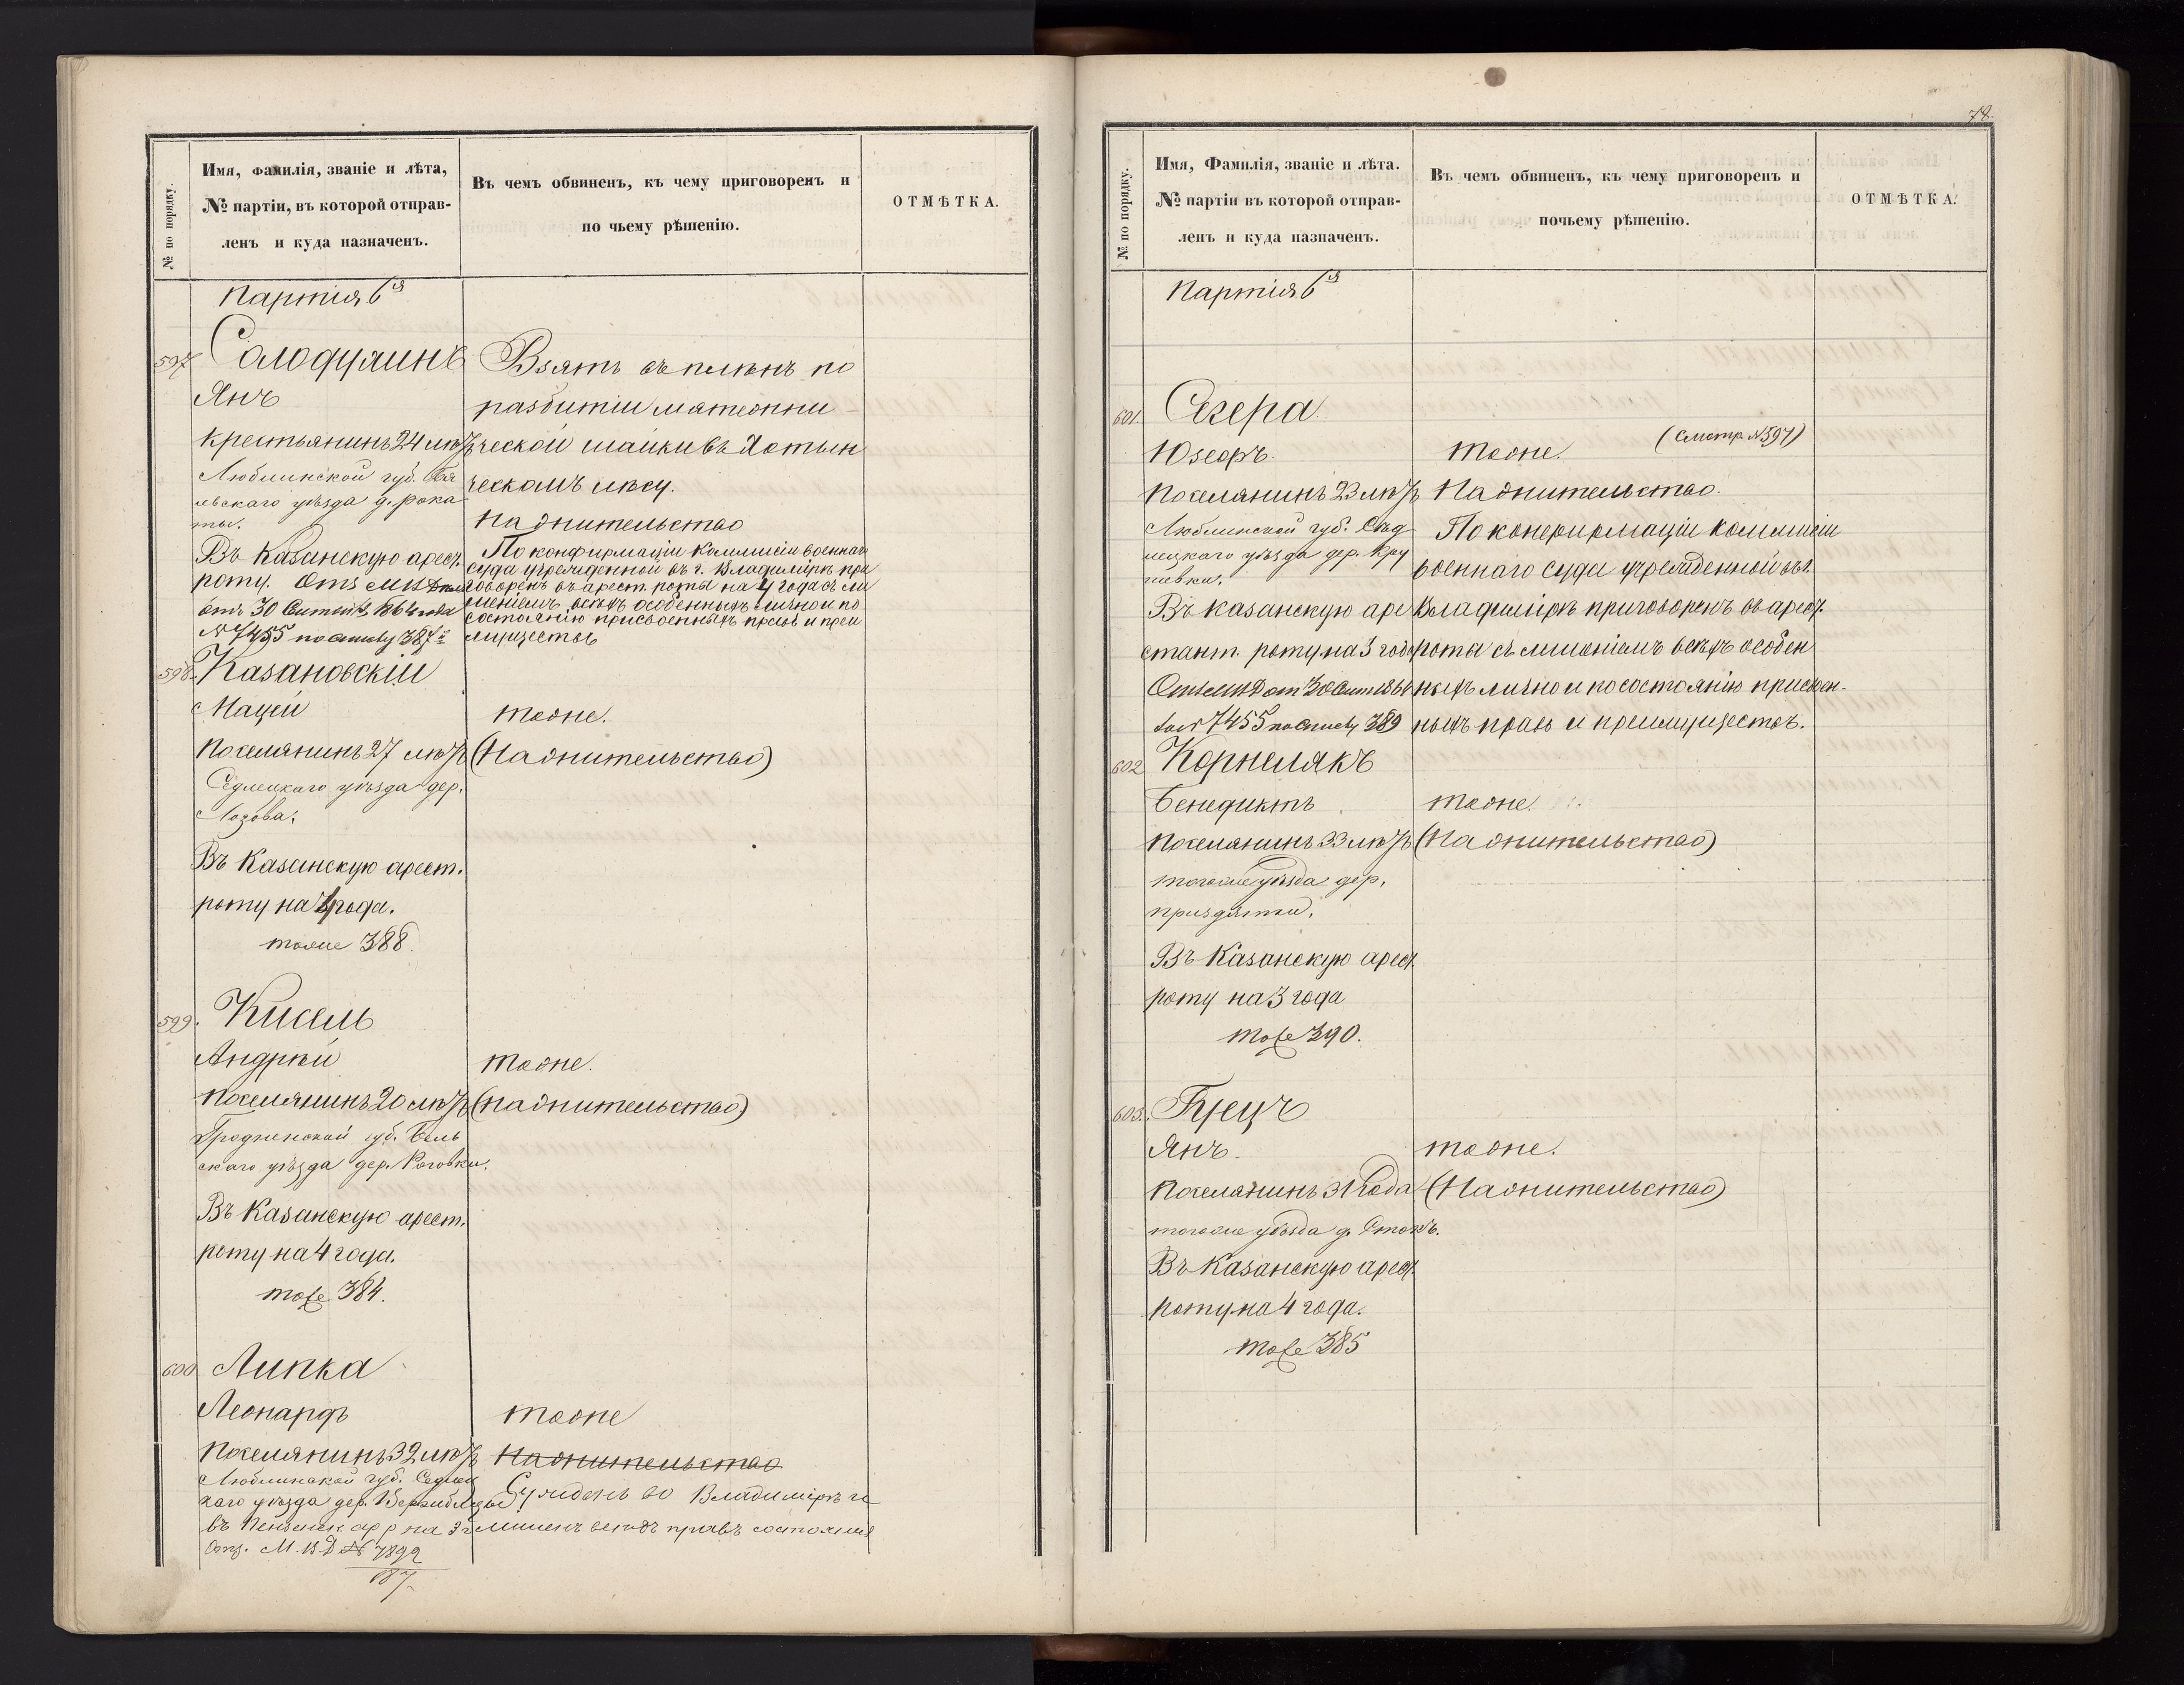 № по порядку.
Имя, фамилія, званіе и лѣта,
№ партіи, въ которой отправ-
ленъ и куда назначенъ.
Въ чемъ обвиненъ, къ чему приговоренъ и
по чьему рѣшенію.
ОТМѢТКА.
Партія 6я
597
Солодуминъ
Янъ
Крестьянинъ 24 лѣтъ
Люблинской губ. Бя
льскаго уѣзда д. Рока
ты.
Въ Казанскую арест.
роту. Отз МВД
отъ 30 Сентяб. 1864 года
№ 7455 по списку 387й
Взятъ въ плѣнъ по
разбитіи мятежни-
ческой шайки въ Хотын
ческомъ лѣсу.
На жительство
По конфирмаціи Коммисіи военнаго
суда учрежденной въ г. Владимірѣ при
говоренъ въ арест. роты на 4 года съ ли
шеніемъ всѣхъ особенныхъ лично и по
состоянію присвоенныхъ правъ и преи
муществъ
598.
Казановскій
Мацей
Поселянинъ 27 лѣтъ
Седлецкаго уѣзда дер.
Лозова.
Въ Казанскую арест.
роту на года.
тоже 388.
тоже.
(На жительство)
599.
Кисель
Андрей
Поселянинъ 20 лѣтъ
Гродненской губ. Бель
скаго уѣзда дер. Роговки.
Въ Казанскую арест.
роту на 4 года.
тоже 384.
тоже.
(на жительство)
600
Липка
Леонардъ
Поселянинъ 32 лѣтъ
Люблинской губ. Седлец
каго уѣзда дер.
въ Пензенск. ар р на 3 г
Отз. М.В.Д № 7892
187.
тоже
На жительство
Сужденъ во Владимірѣ и
лишенъ всѣхъ правъ состоянія
78.
№ по порядку.
Имя, Фамилія, званіе и лѣта.
№ партіи въ которой отправ-
ленъ и куда назначенъ.
Въ чемъ обвиненъ, къ чему приговоренъ и
почьему рѣшенію.
ОТМѢТКА.
Партія 6я
601.
Сезера
Юзефъ.
Поселянинъ 23 лѣтъ
Люблинской губ. Сѣд
лецкаго уѣзда дер. Кру
шевки.
Въ Казанскую аре
стант. роту на 3 года
Отз МВД от 30 Сент 1864
года № 7455 по списку 389
тоже. (Смотр. №597)
На жительство.
По конфирмаціи коммисіи
военнаго суда учрежденной въ г.
Владимірѣ приговоренъ въ арест.
роты съ лишеніемъ всѣхъ особен
ныхъ лично и по состоянію присвоен-
ныхъ правъ и преимуществъ.
602
Корнелякъ
Бенедиктъ
Поселянинъ 33 лѣтъ
тогоже уѣзда дер.
приздятки.
Въ Казанскую арест.
роту на 3 года
тоже 390.
тоже.
(На жительство)
603.
Грецъ
Янъ.
Поселянинъ 31 года
тогоже уѣзда д. Стокъ.
Въ Казанскую арест.
роту на 4 года.
тоже 385
тоже.
(На жительство)